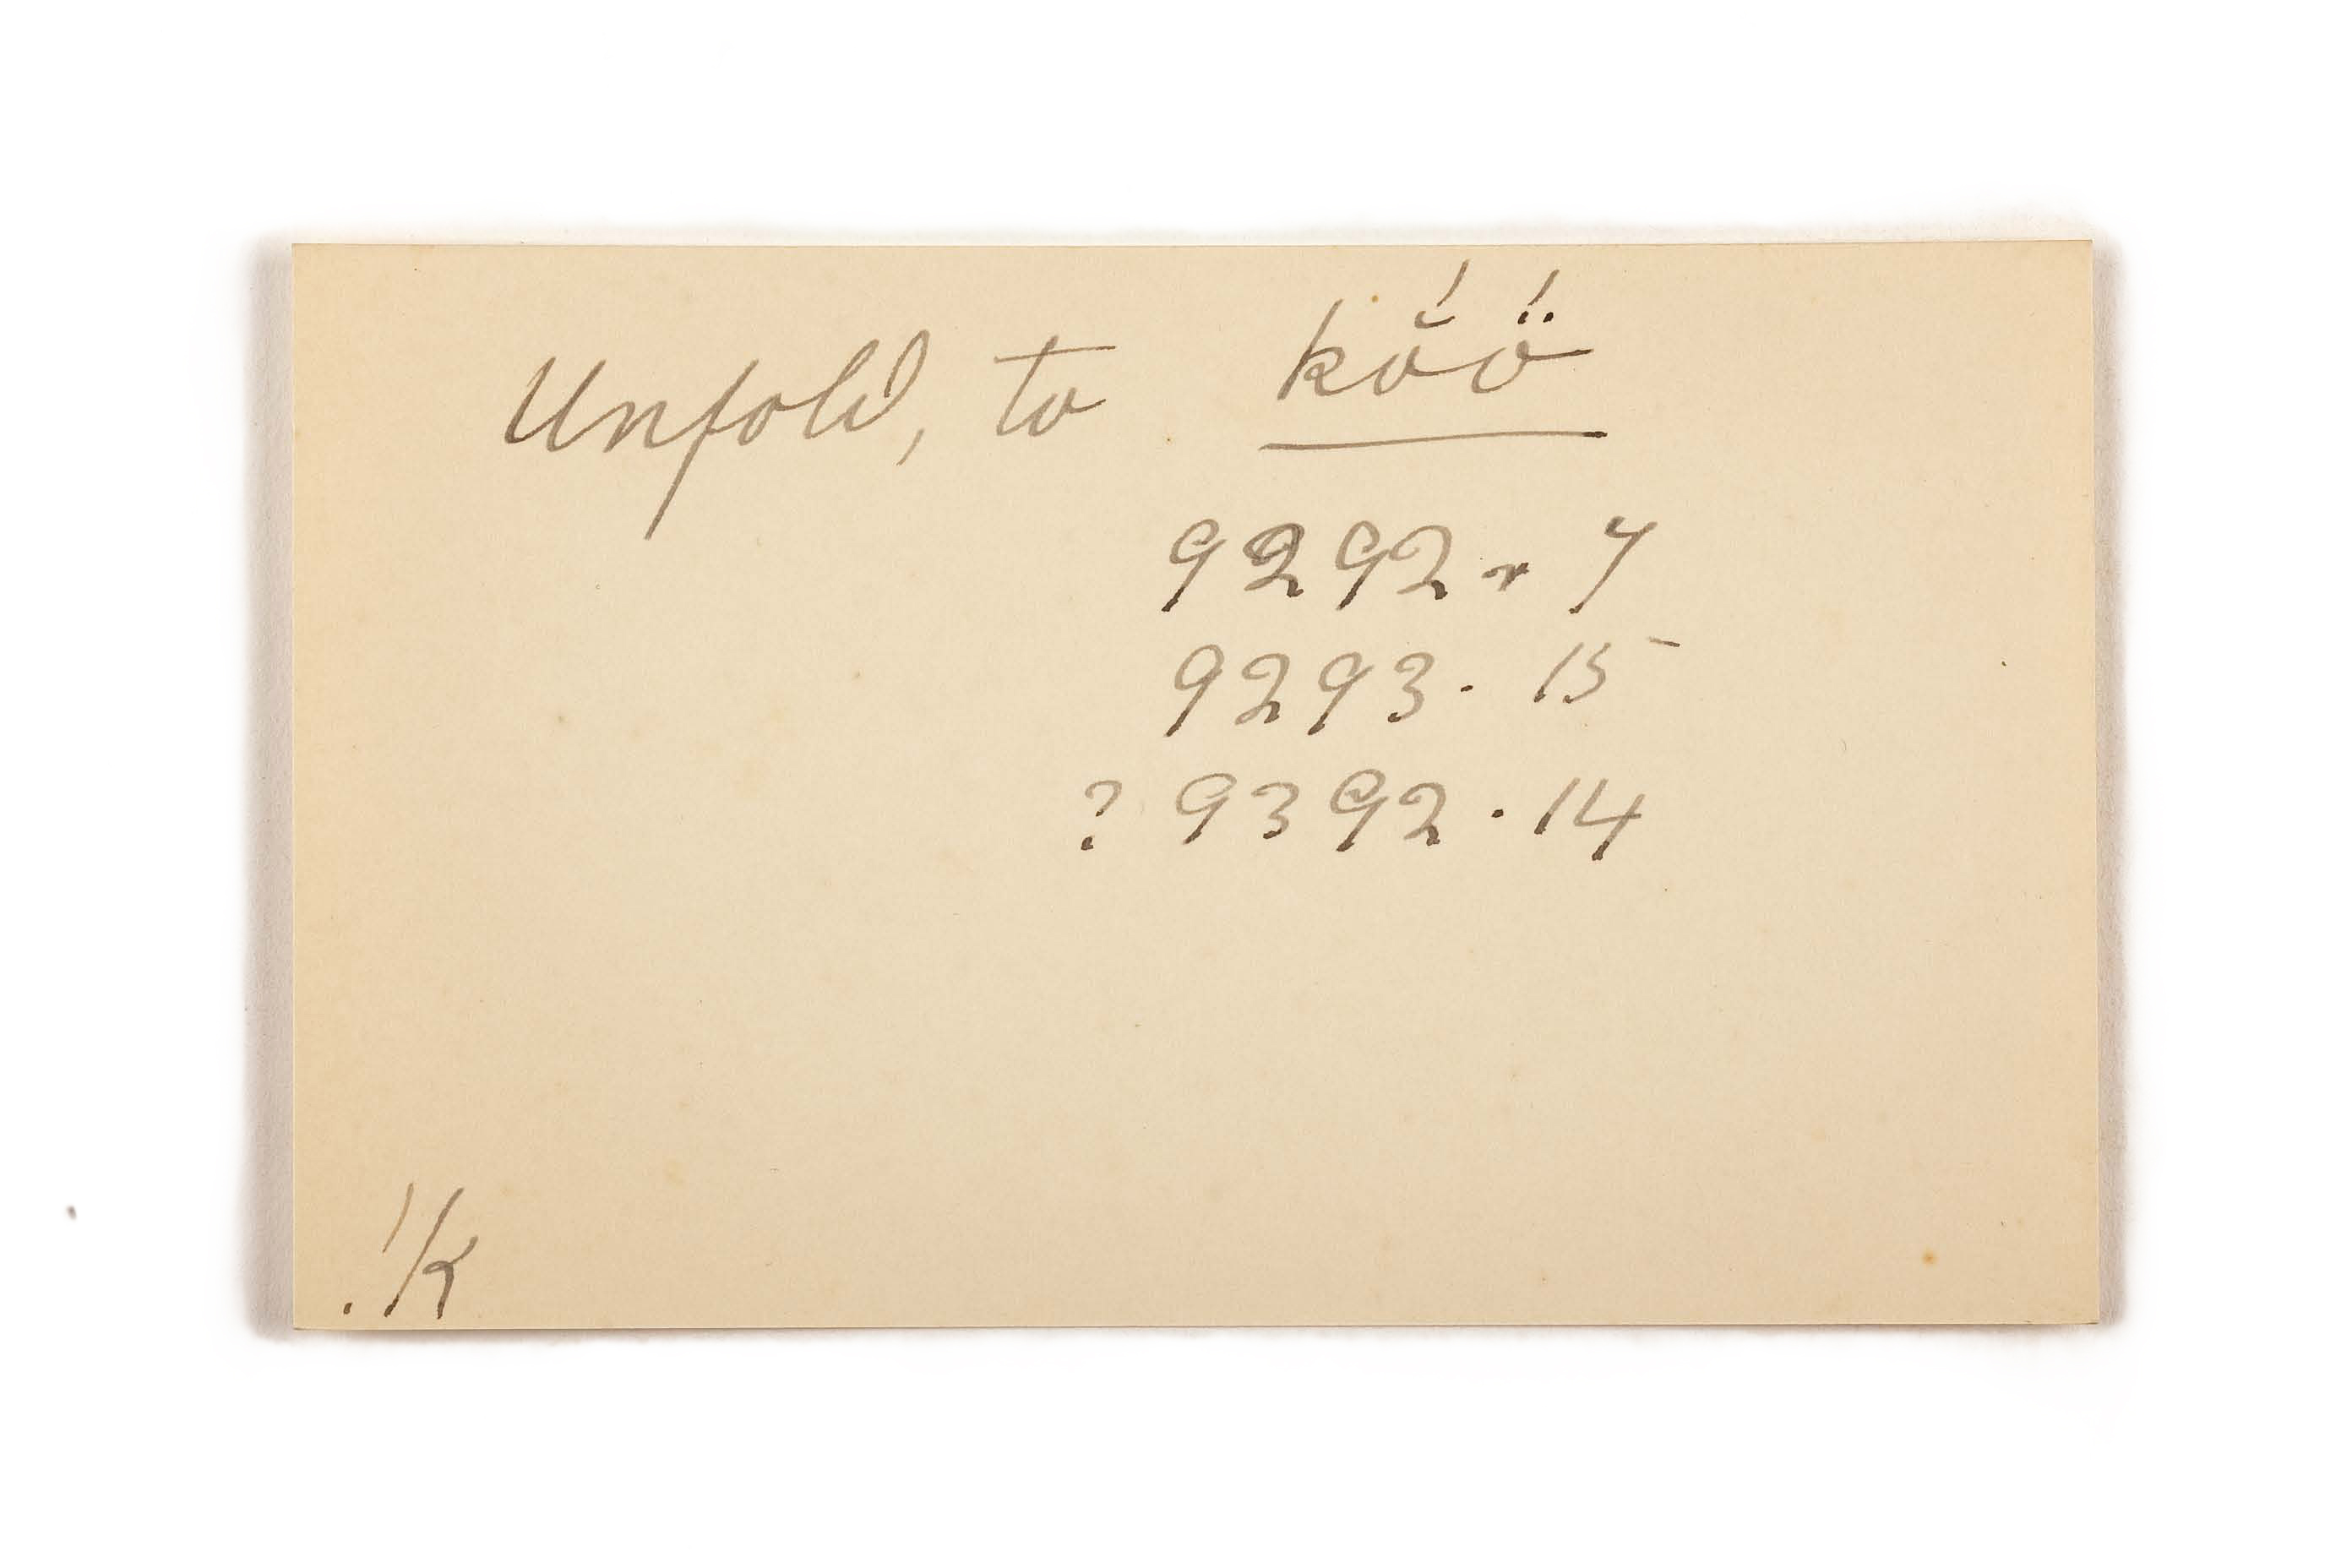 Unfold, to kŏ́ö́
9292. 7
9293. 15
? 9392. 14
. 'k